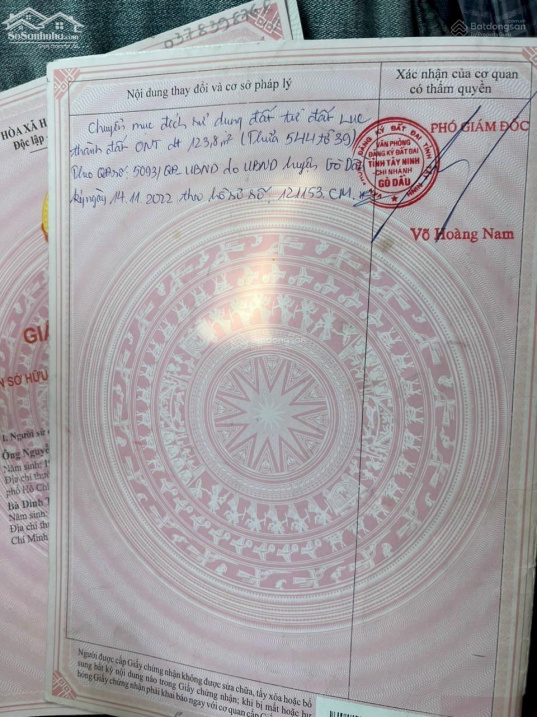 SoSanhnha.com
Batdongsan
HÒA XÃ H
Độc lập -
GIẤ
N SỞ HỮU
I. Người sử
Ông Nguyễ
Năm sinh: 1
Địa chỉ thư
phố Hồ Chí
Bà Đinh T
Năm sinh:
Địa chỉ thư
Chí Minh
Nội dung thay đổi và cơ sở pháp lý
Xác nhận của cơ quan
có thẩm quyền
Chuyển mục đích sử dụng đất từ đất LUC
thành đất ONT dt 123,8 m² (Thửa 544 tờ 39)
Theo QĐ số: 5093/QĐ.UBND do UBND huyện Gò Dầu
ký ngày 14.11.2022 theo hồ sơ số: 121153.CM.
PHÓ GIÁM ĐỐC
VĂN PHÒNG
ĐĂNG KÝ ĐẤT ĐAI
TỈNH TÂY NINH
-CHI NHÁNH
GÒ DẦU
Võ Hoàng Nam
Batdongsan
Người được cấp Giấy chứng nhận không được sửa chữa, tẩy xóa hoặc bổ
sung bất kỳ nội dung nào trong Giấy chứng nhận; khi bị mất hoặc hư
hỏng Giấy chứng nhận phải khai báo ngay với cơ quan cấp Giấy